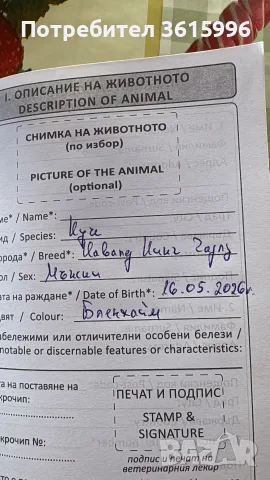 Потребител 3615996
I. ОПИСАНИЕ НА ЖИВОТНОТО
DESCRIPTION OF ANIMAL
СНИМКА НА ЖИВОТНОТО
(по избор)
PICTURE OF THE ANIMAL
(optional)
ме* / Name*:
ид / Species: Куче
орода* / Breed*: Кавалд Кинг Чарлз
ол / Sex: Мъжки
ата на раждане* / Date of Birth*: 16.05.2026г.
вят / Colour: Бленхайм
абележими или отличителни особени белези /
notable or discernable features or characteristics:
та на поставяне на
крочип:
крочип №:
ПЕЧАТ И ПОДПИС
STAMP &
SIGNATURE
подпис и печат на
ветеринарния лекар
BAZAR